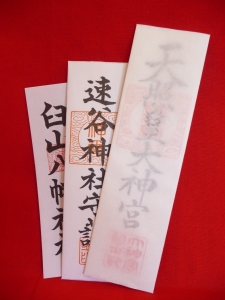 天照皇大神宮
速谷神社守護
臼山八幡神社